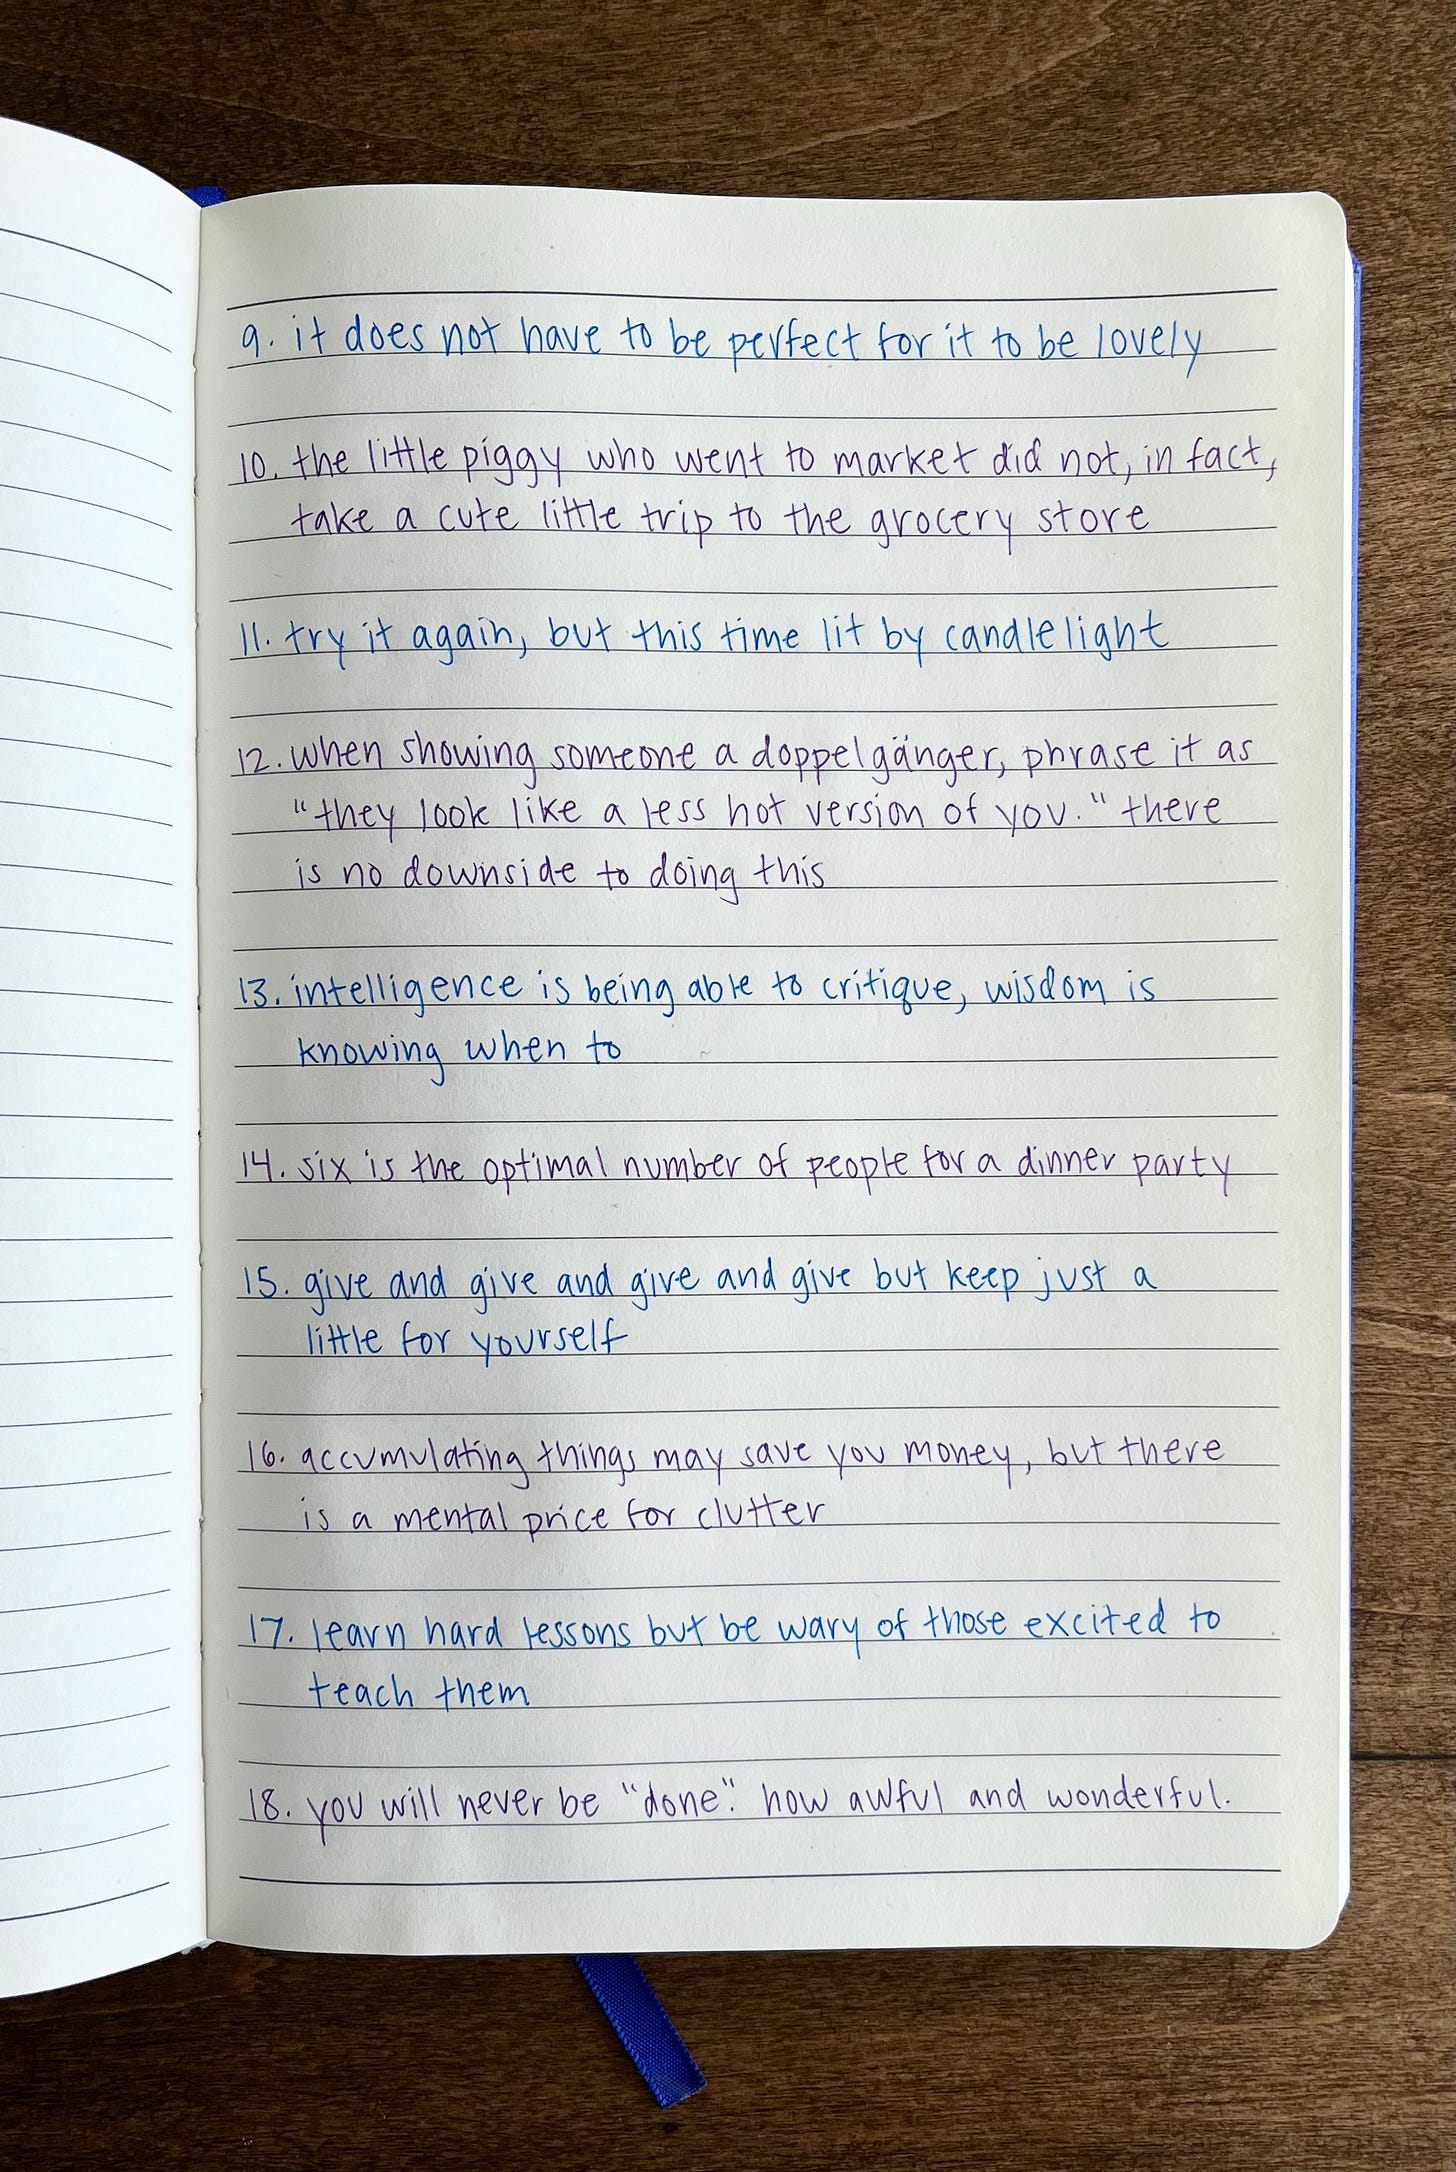 9. it does not have to be perfect for it to be lovely
10. the little piggy who went to market did not, in fact,
take a cute little trip to the grocery store
11. try it again, but this time lit by candlelight
12. when showing someone a doppelgänger, phrase it as
"they look like a less hot version of you." there
is no downside to doing this
13. intelligence is being able to critique, wisdom is
knowing when to
14. six is the optimal number of people for a dinner party
15. give and give and give and give but keep just a
little for yourself
16. accumulating things may save you money, but there
is a mental price for clutter
17. learn hard lessons but be wary of those excited to
teach them
18. you will never be "done". how awful and wonderful.